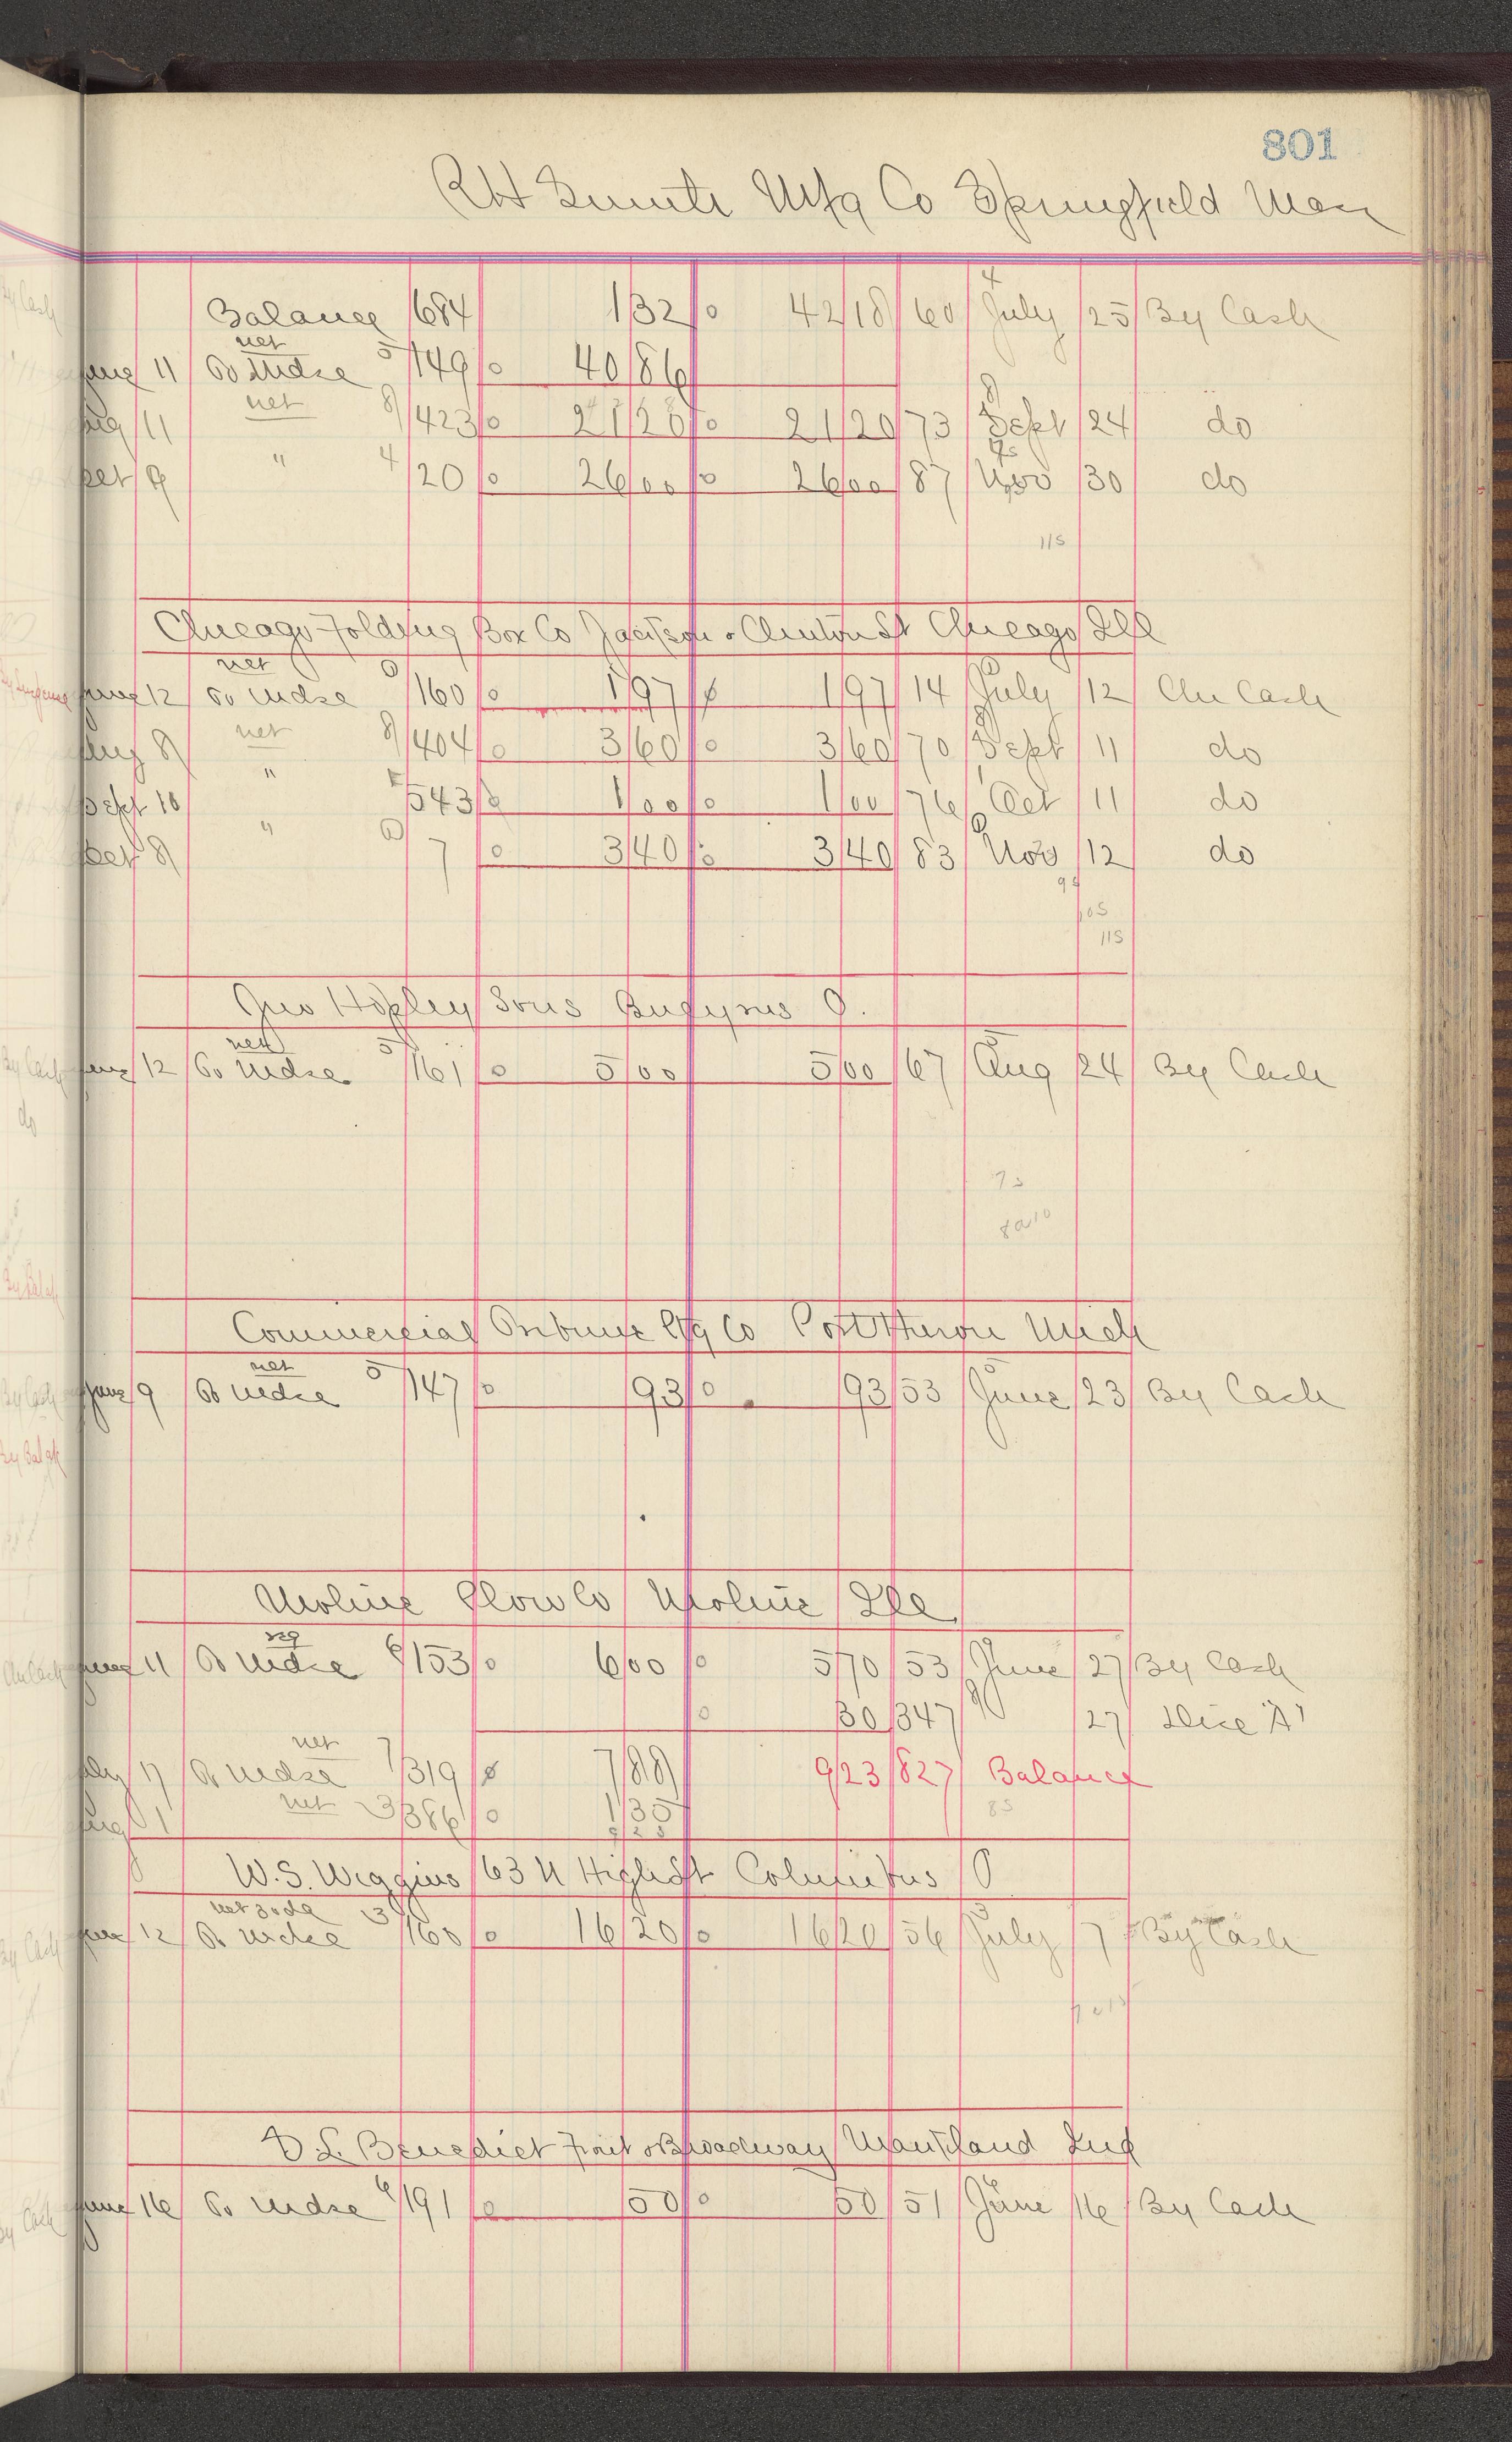 801
R H Smith Mfg Co Springfield Mass
Balance 684 1 32 0 42 18 60 July 25 By Cash
June 11 To Mdse net 5/149 0 40 86
Aug 11 net 8/423 0 21 20 0 21 20 73 Sept 24 do
Oct 9 " 4/20 0 26 00 0 26 00 87 Nov 30 do
115
Chicago Folding Box Co Jackson & Clinton St Chicago Ill
June 12 To Mdse net 160 0 1 97 0 1 97 14 July 12 Chi Cash
Aug 8 net 8/404 0 3 60 0 3 60 70 Sept 11 do
Sept 10 " 543 0 1 00 0 1 00 76 Oct 11 do
Oct 8 " 7 0 3 40 0 3 40 83 Nov 12 do
95
105
115
Jno Hopley Sons Bucyrus O.
June 12 To Mdse net 5/161 0 5 00 5 00 67 Aug 24 By Cash
75
8a10
Commercial Tribune Ptg Co Port Huron Mich
June 9 To Mdse net 5/147 0 93 0 93 53 June 23 By Cash
Moline Plow Co Moline Ill
June 11 To Mdse 6/153 0 6 00 0 5 70 53 June 27 By Cash
0 30 347 27 Disc "A"
July 17 To Mdse net 7/319 0 7 88 9 23 827 Balance
Aug 1 net 3/386 0 1 35
9 23
85
W. S. Wiggins 63 N High St Columbus O
June 12 To Mdse net 30 da 3/160 0 16 20 0 16 20 56 July 7 By Cash
D. L. Benedict Front & Broadway Maryland Ind
June 16 To Mdse 6/191 0 50 0 50 51 June 16 By Cash